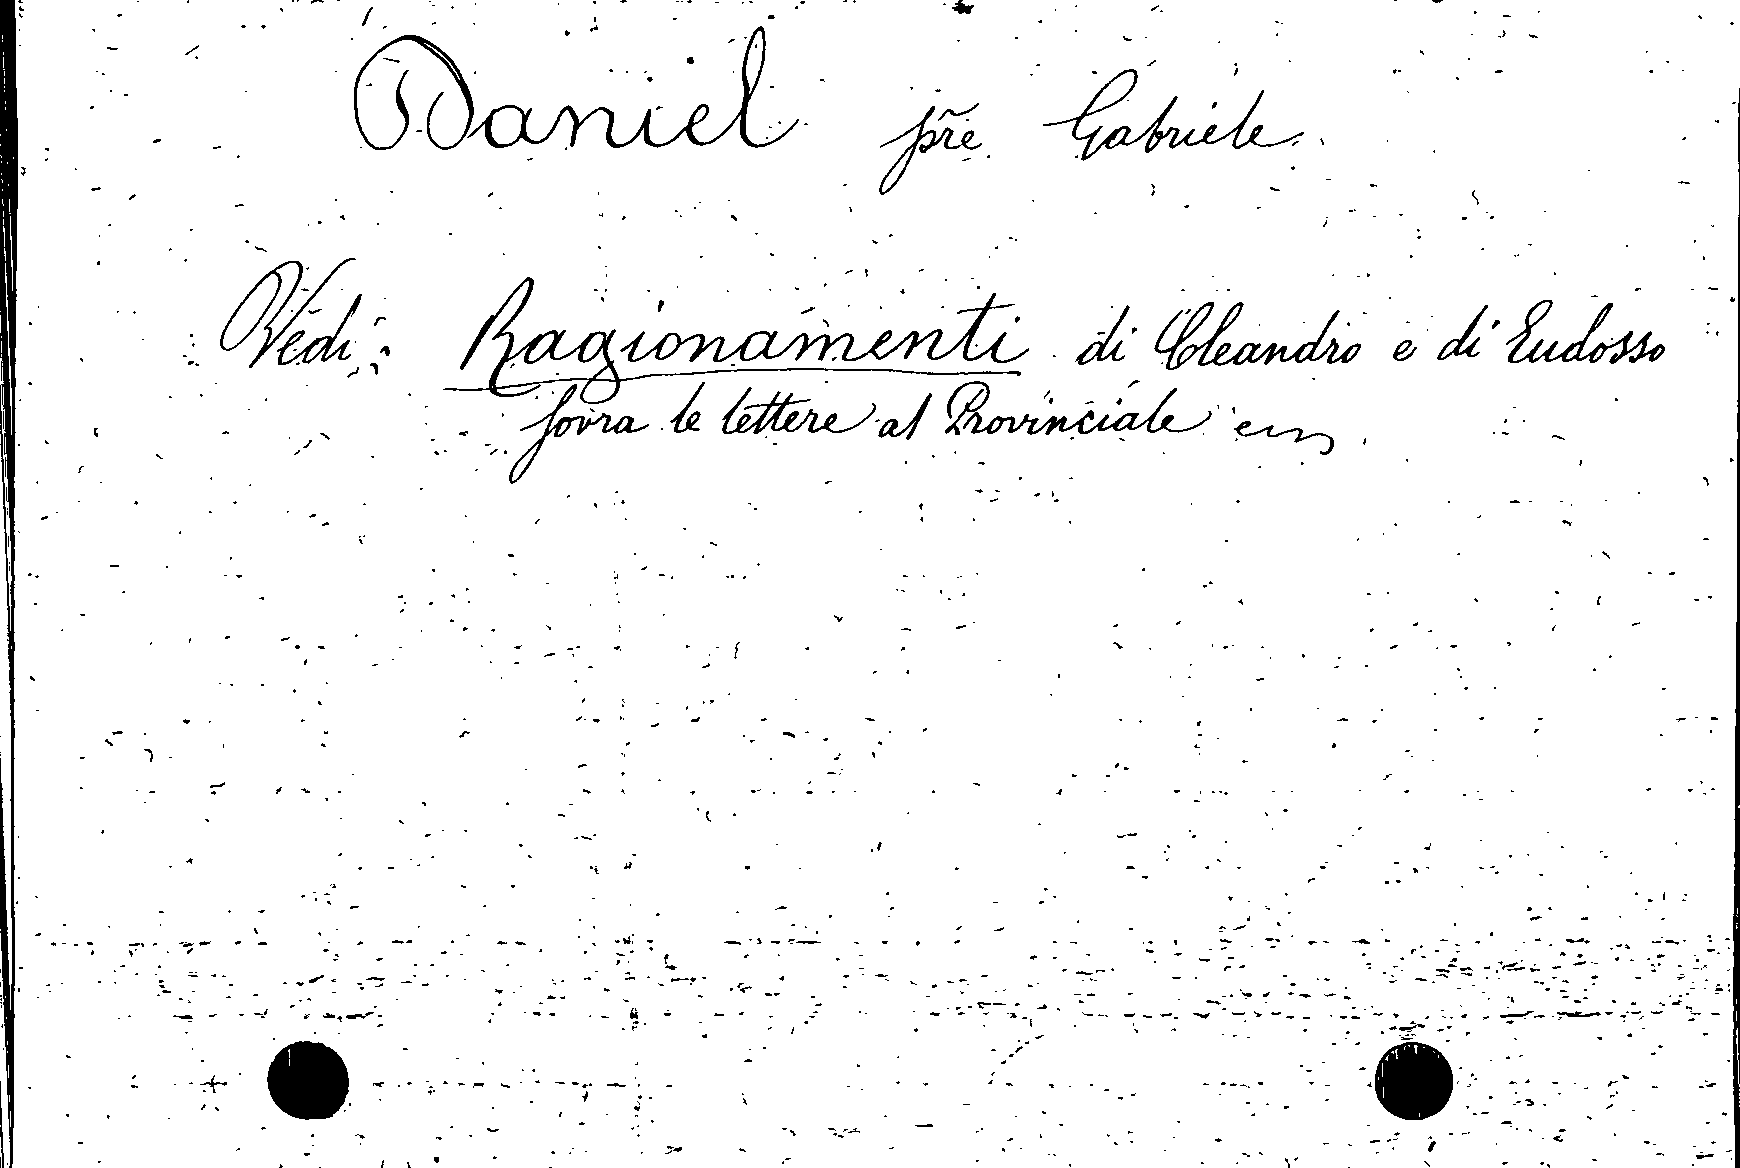 Daniel pr̃e Gabriele
Vedi: Ragionamenti di Cleandro e di Eudosso
sovra le lettere al Provinciale